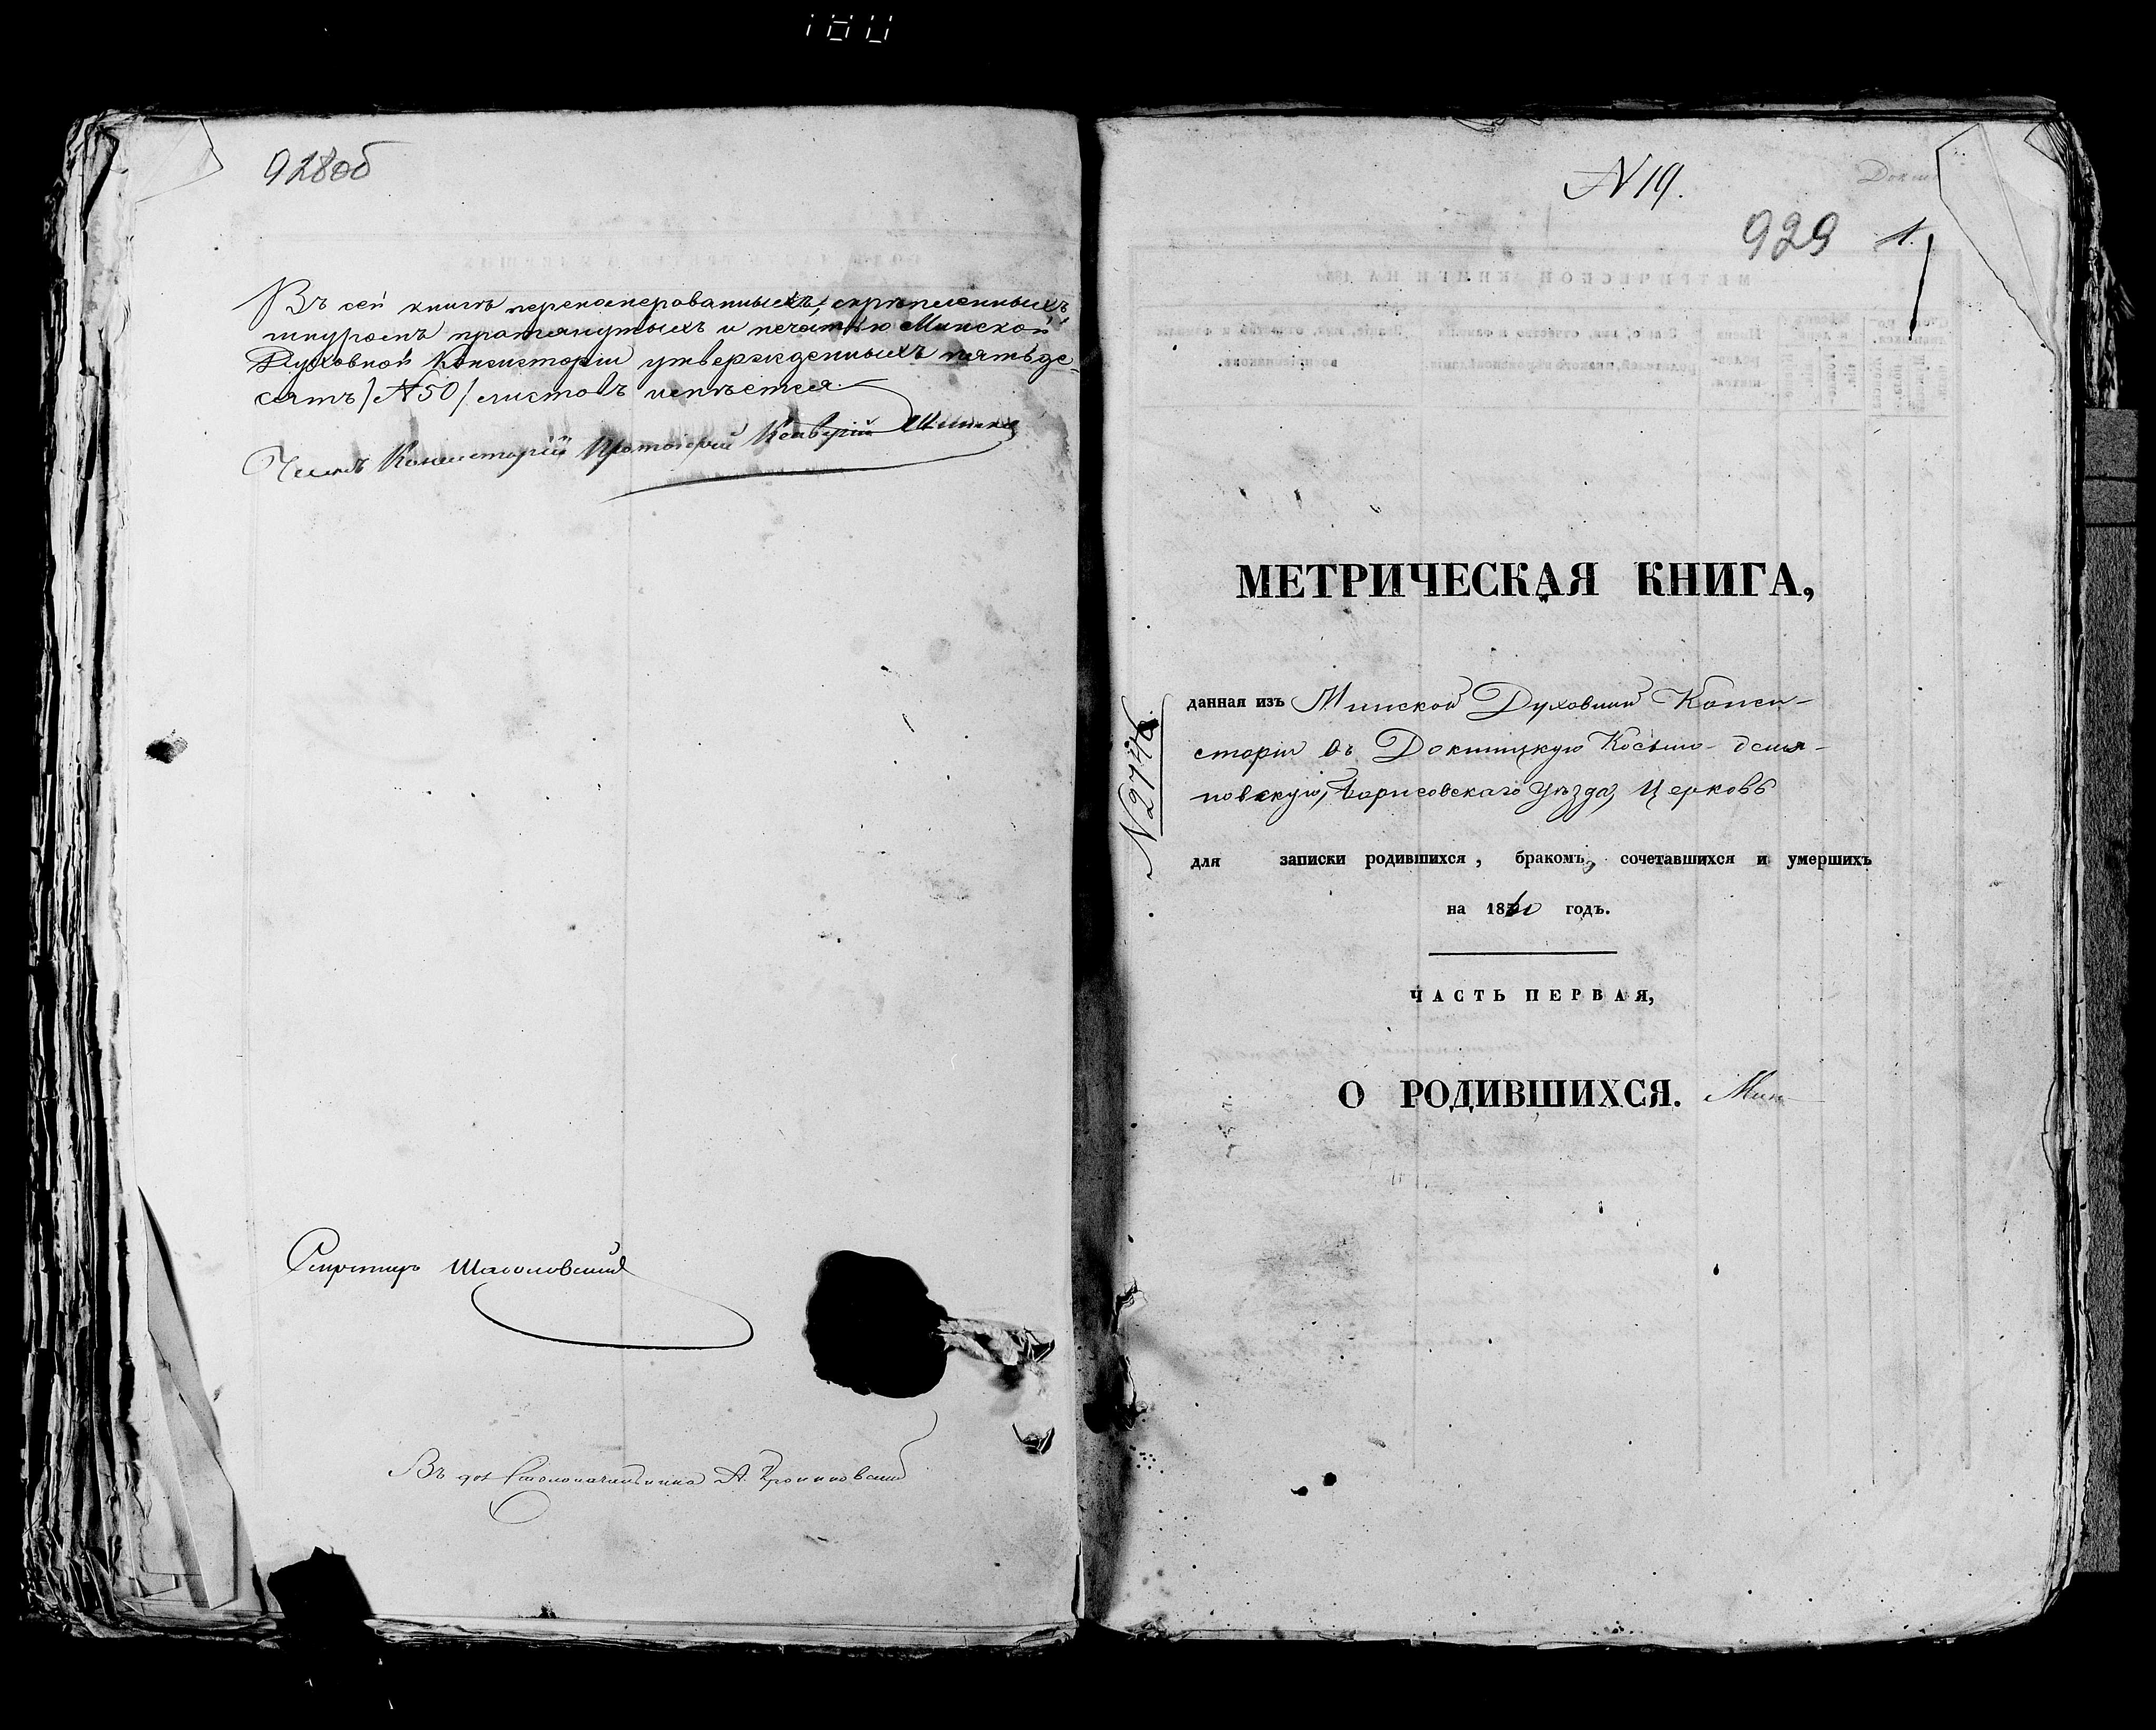 180
928об
Въ сей книгѣ перенумерованныхъ, скрѣпленныхъ
шнуромъ протянутыхъ и печатью Минской
Духовной Консисторіи утвержденныхъ пятьде-
сятъ /№50/ листовъ имѣется.
Членъ Консисторіи Протоіерей
Секретарь
Въ дол. Столоначальника А.
№ 19.
929 1.
МЕТРИЧЕСКАЯ КНИГА,
данная изъ Минской Духовной Конси-
сторіи въ Докшицкую Косьмо-демья-
новскую, Борисовскаго уѣзда, Церковь
для записки родившихся, бракомъ, сочетавшихся и умершихъ
на 18 годъ.
ЧАСТЬ ПЕРВАЯ,
О РОДИВШИХСЯ. Мин
№2746